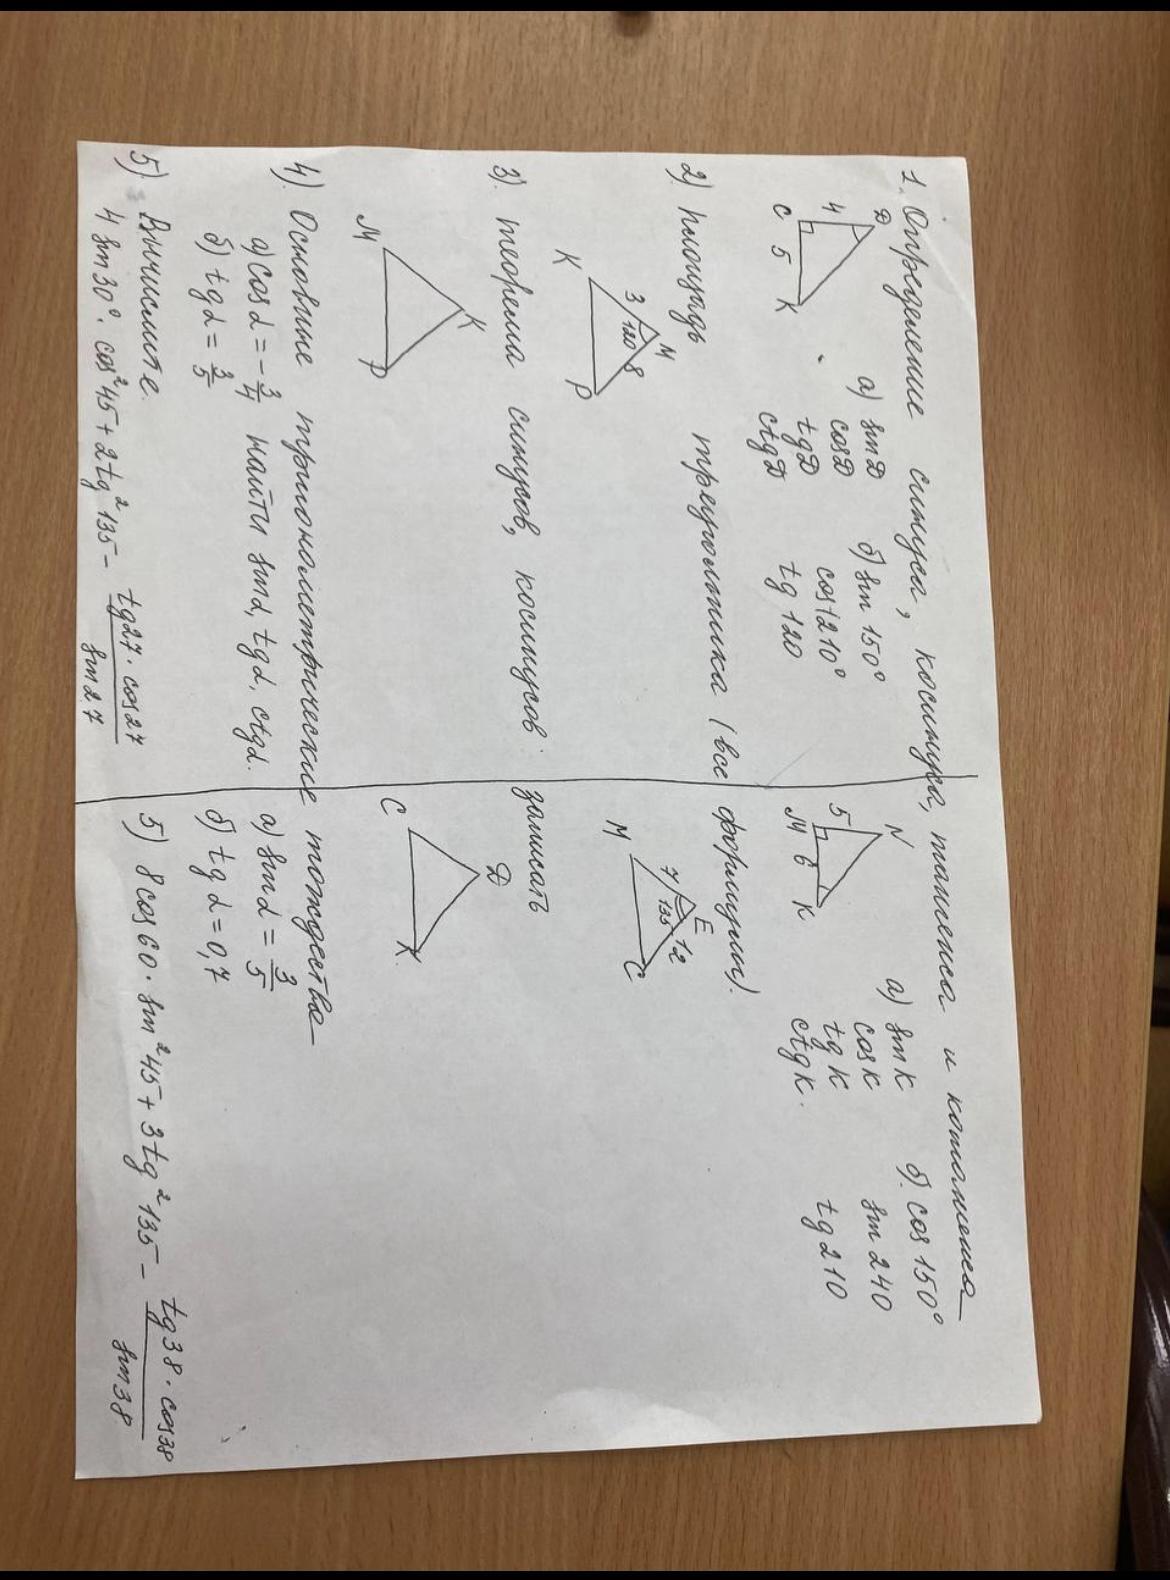 1. Определение синуса, косинуса, тангенса и котангенса
D
4
C 5 K
а) sin D
cos D
tg D
ctg D
б) sin 150°
cos 1210°
tg 120
N
5
M 6 K
а) sin K
cos K
tg K
ctg K.
б). cos 150°
sin 240
tg 210
2) Площадь треугольника (все формулы).
M
3 120 8
K P
E
7 135 12
M C
3). теорема синусов, косинусов записать
K
M P
D
C K
4) Основные тригонометрические тождества
а) cos α = - 3/4 найти sin α, tg α, ctg α.
б) tg α = 3/5
а) sin α = 3/5
б) tg α = 0,7
5) Вычислите.
4 sin 30° · cos² 45 + 2 tg² 135 - tg 27 · cos 27 / sin 27
5) 8 cos 60 · sin² 45 + 3 tg² 135 - tg 38 · cos 38 / sin 38